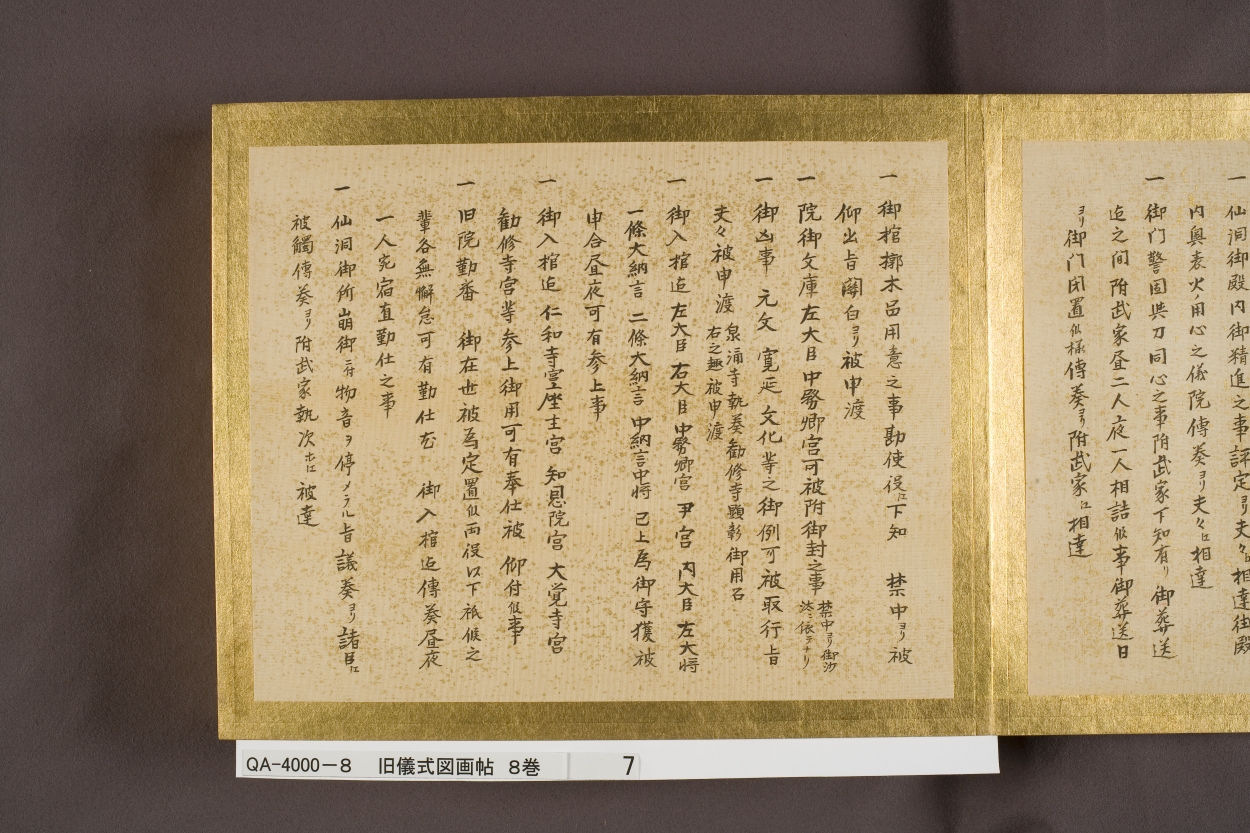 一 仙洞御殿内御精進之事評定ヨリ夫々江相達御殿
内輿表火ノ用心之儀院傳奏ヨリ夫々江相達
一 御門警固與力同心之事附武家下知有リ 御葬送
迄之間 附武家昼二人夜一人相詰候事御葬送日
ヨリ御門閉置候様傳奏ヨリ附武家江相達
一 御棺槨木品用意之事勘使役江下知 禁中ヨリ被
仰出旨關白ヨリ被申渡
一 院御文庫左大臣中務卿宮可被附御封之事 禁中ヨリ御沙
汰ニ依テナリ
一 御凶事 元文 寛延 文化等之御例可被取行旨
夫々被申渡 泉涌寺執奏勧修寺顕彰御用召
右之趣被申渡
一 御入棺迄左大臣 右大臣 中務卿宮 尹宮 内大臣 左大将
一條大納言 二條大納言 中納言中将 已上為御守護被
申合昼夜可有参上事
一 御入棺迄 仁和寺宮 座主宮 知恩院宮 大覚寺宮
勧修寺宮等参上御用可有奉仕被 仰付候事
一 旧院勤番 御在世被為定置候両役以下祗候之
輩各無懈怠可有勤仕 御入棺迄傳奏昼夜
一人宛宿直勤仕之事
一 仙洞御所崩御ニ付物音ヲ停メラル旨議奏ヨリ諸臣江
被觸傳奏ヨリ附武家執次ホ江被達
QA-4000-8 旧儀式図画帖 8巻 7